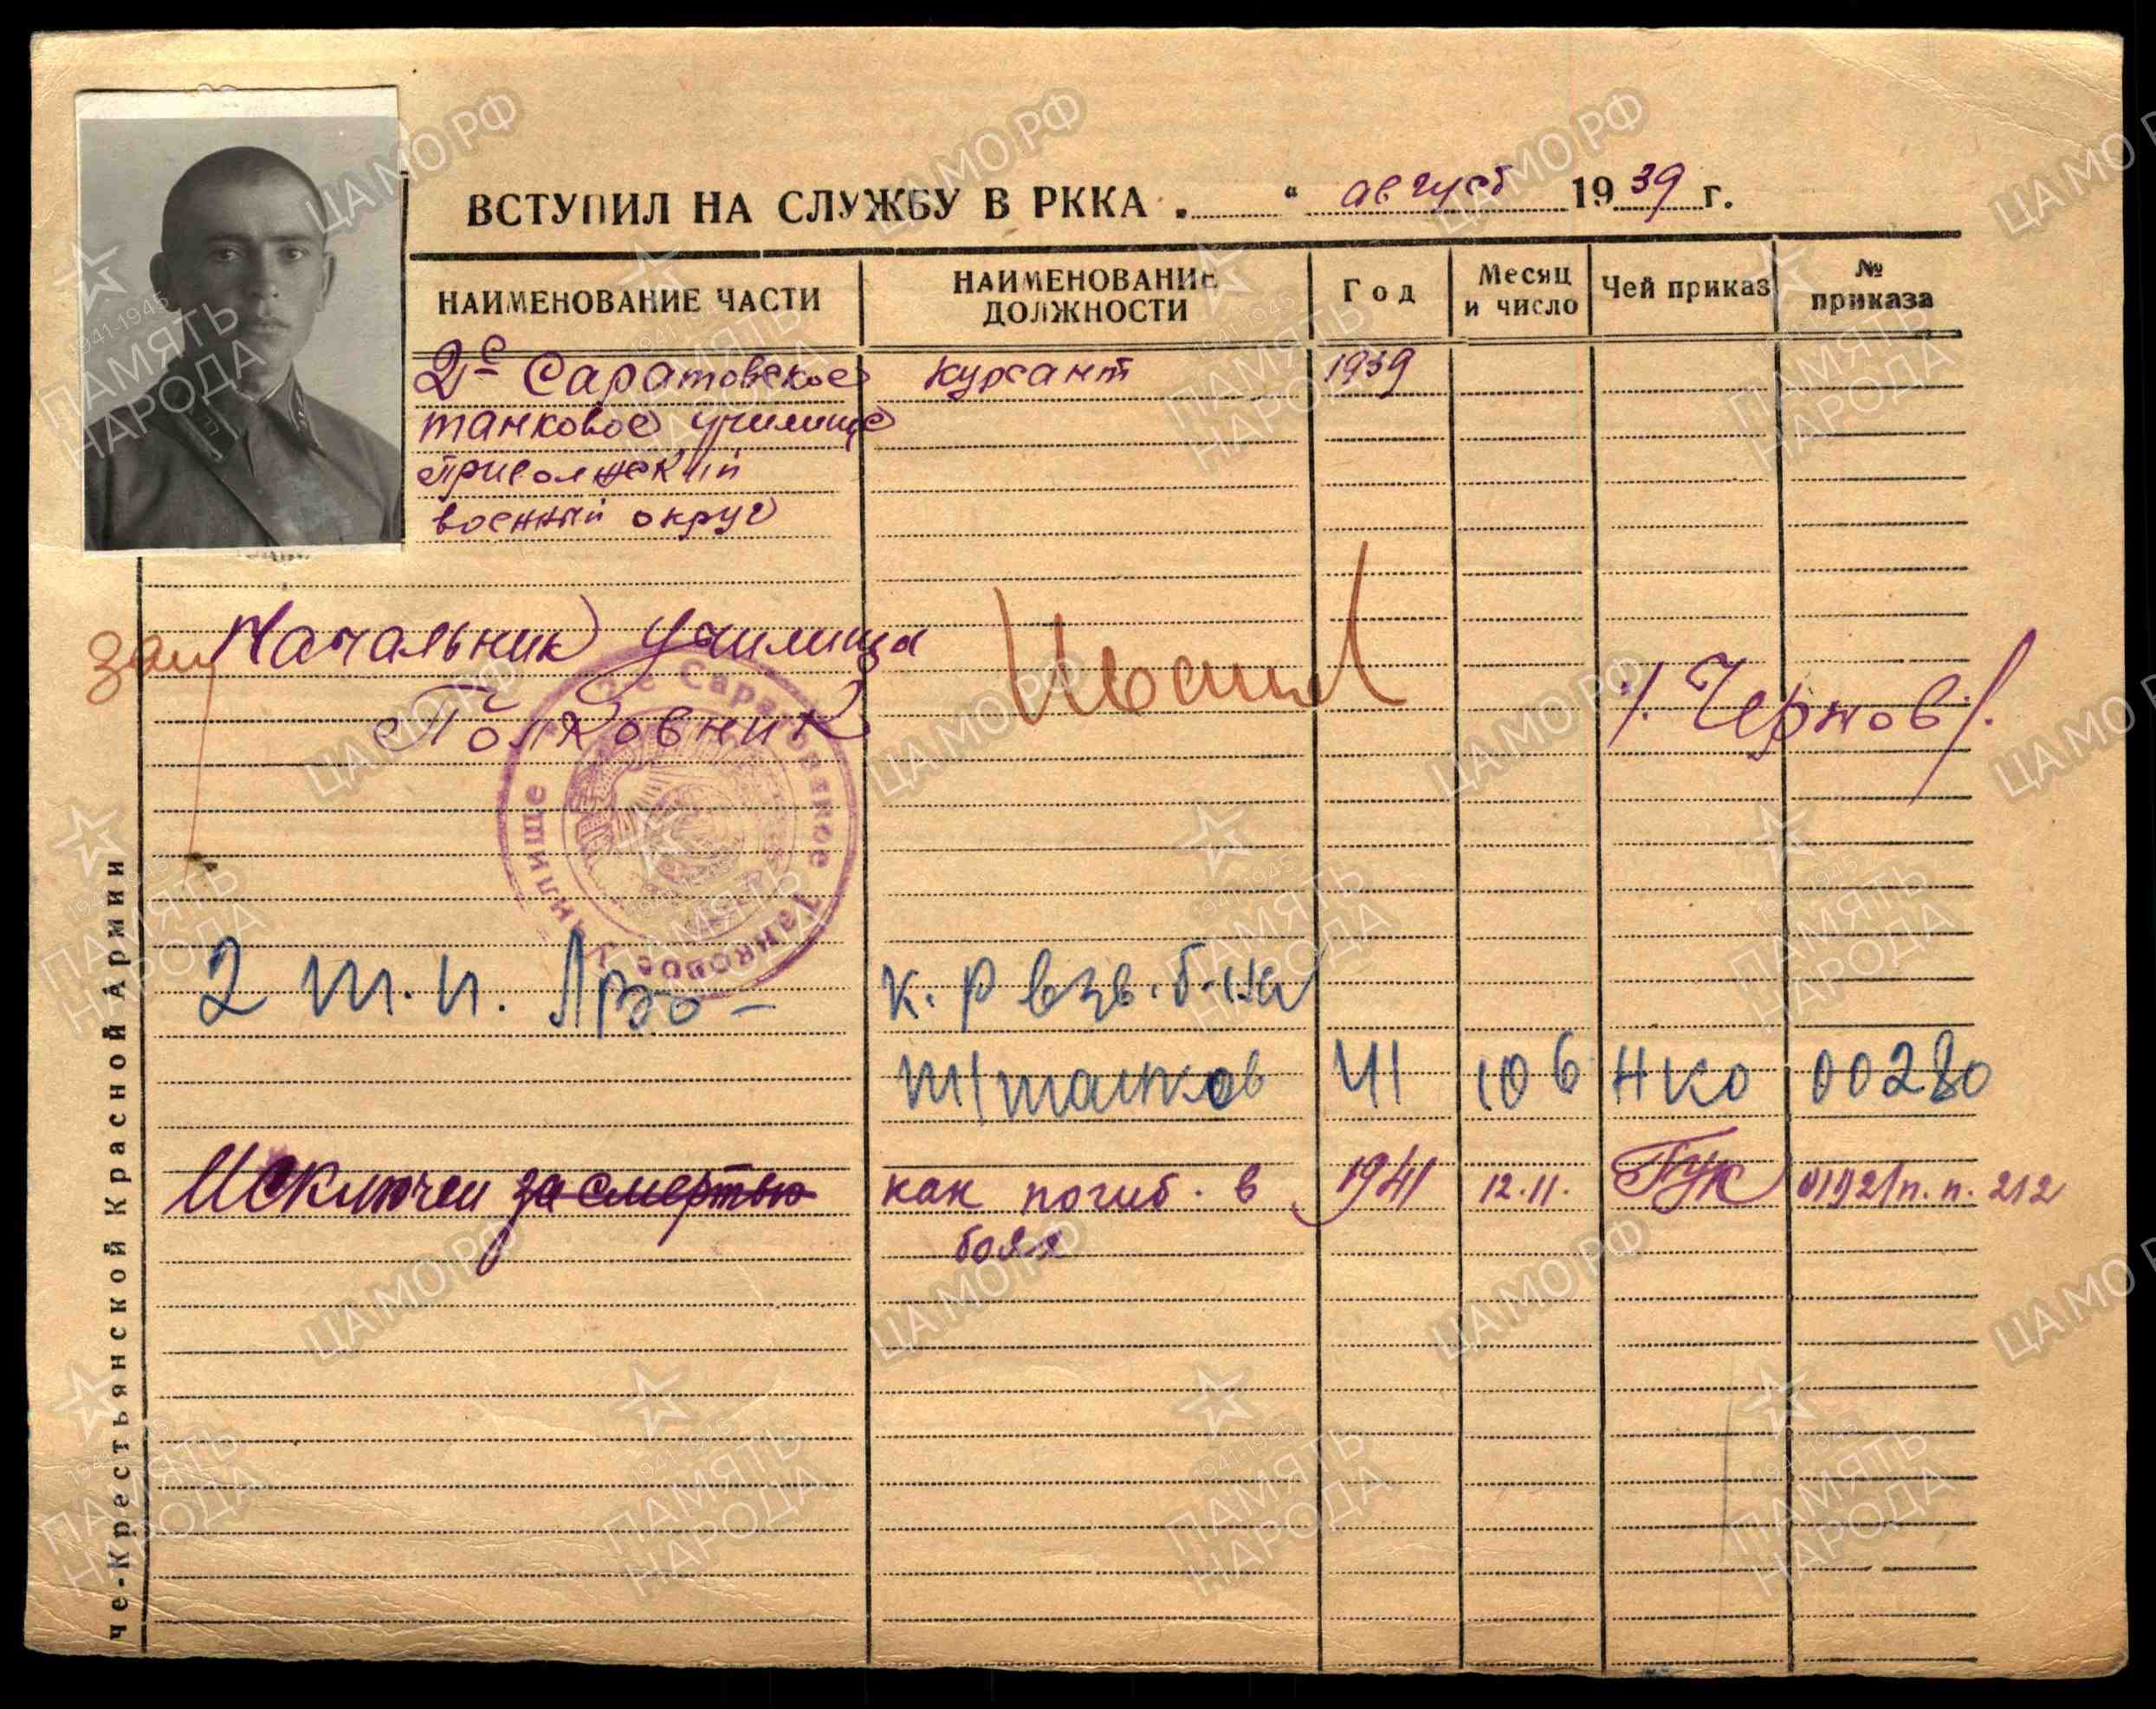 ВСТУПИЛ НА СЛУЖБУ В РККА „ “ август 1939 г.
НАИМЕНОВАНИЕ ЧАСТИ НАИМЕНОВАНИЕ ДОЛЖНОСТИ Год Месяц и число Чей приказ № приказа
2е Саратовское курсант 1939
танковое училище
Приволжский
военный округ
зам Начальник училища
Полковник /. Чернов /.
2е Саратовское Танковое Училище
2 т.п. к.
т/танков 41 106 НКО 00280
Исключен за смертью как погиб. в 1941 12.11. ГУК п. 212
боях
че-Крестьянской Красной Армии
ЦАМО РФ
1941-1945
ПАМЯТЬ
НАРОДА